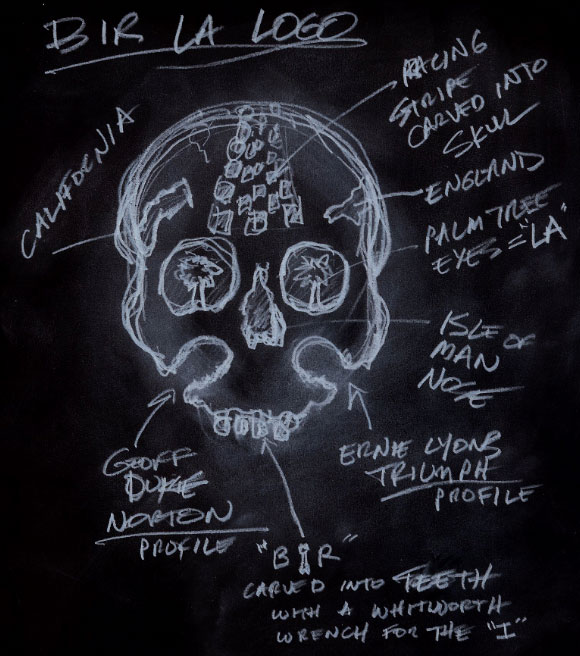 BIR LA LOGO
RACING
STRIPE
CARVED INTO
SKULL
CALIFORNIA
ENGLAND
PALM TREE
EYES = "LA"
ISLE OF
MAN
NOSE
GEOFF
DUKE
NORTON
PROFILE
ERNIE LYONS
TRIUMPH
PROFILE
"BIR"
CARVED INTO TEETH
WITH A WHITWORTH
WRENCH FOR THE "I"